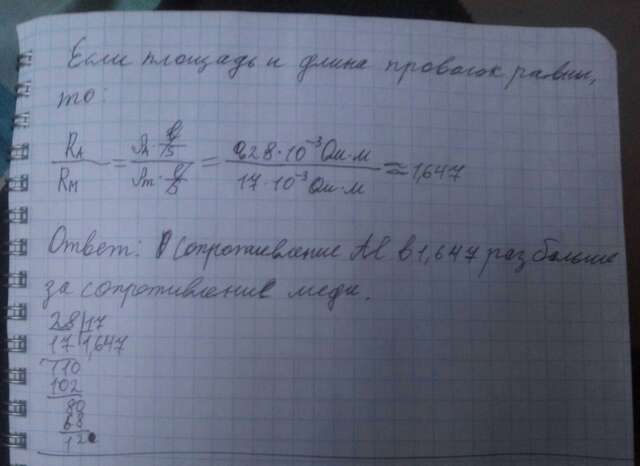 Если площадь и длина проволок равны,
то:
R_A / R_M = ρ_A · l/S / ρ_m · l/S = 28·10⁻³ Ом·м / 17·10⁻³ Ом·м ≈ 1,647
Ответ: Сопротивление Al в 1,647 раз больше
за сопротивление меди.
28 | 17
17 | 1,647
110
102
80
68
12